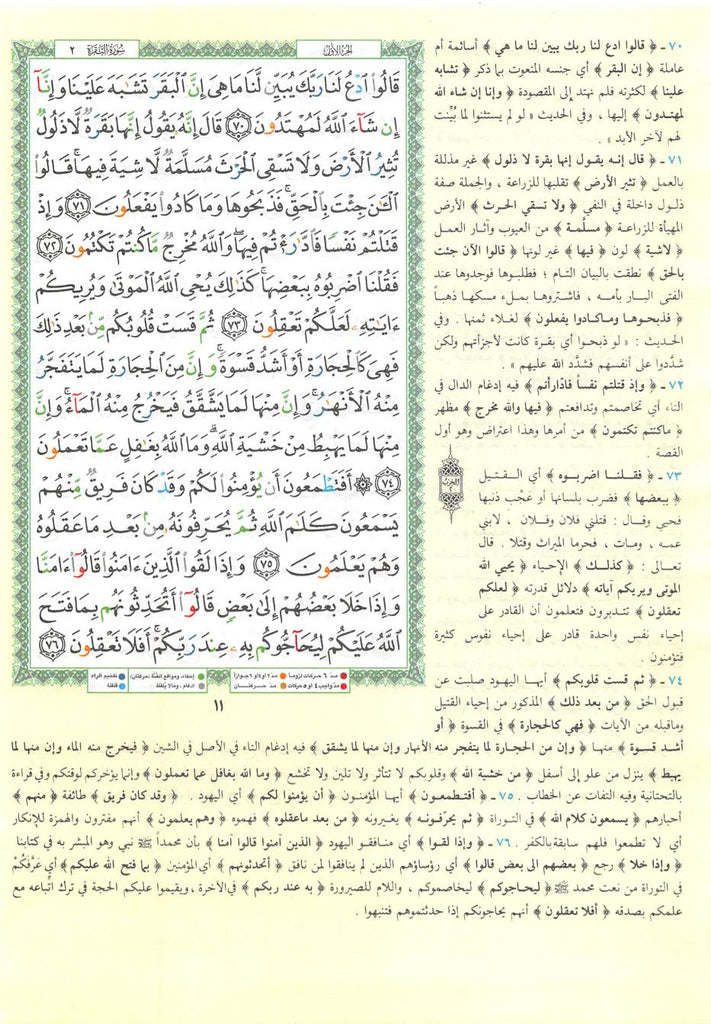 سورة البقرة ٢
الجزء الأول
قَالُوا۟ ٱدْعُ لَنَا رَبَّكَ يُبَيِّن لَّنَا مَا هِىَ إِنَّ ٱلْبَقَرَ تَشَٰبَهَ عَلَيْنَا وَإِنَّآ
إِن شَآءَ ٱللَّهُ لَمُهْتَدُونَ ﴿٧٠﴾ قَالَ إِنَّهُۥ يَقُولُ إِنَّهَا بَقَرَةٌ لَّا ذَلُولٌ
تُثِيرُ ٱلْأَرْضَ وَلَا تَسْقِى ٱلْحَرْثَ مُسَلَّمَةٌ لَّا شِيَةَ فِيهَا ۚ قَالُوا۟
ٱلْـَٰٔنَ جِئْتَ بِٱلْحَقِّ ۚ فَذَبَحُوهَا وَمَا كَادُوا۟ يَفْعَلُونَ ﴿٧١﴾ وَإِذْ
قَتَلْتُمْ نَفْسًا فَٱدَّٰرَْٰٔتُمْ فِيهَا ۖ وَٱللَّهُ مُخْرِجٌ مَّا كُنتُمْ تَكْتُمُونَ ﴿٧٢﴾
فَقُلْنَا ٱضْرِبُوهُ بِبَعْضِهَا ۚ كَذَٰلِكَ يُحْىِ ٱللَّهُ ٱلْمَوْتَىٰ وَيُرِيكُمْ
ءَايَٰتِهِۦ لَعَلَّكُمْ تَعْقِلُونَ ﴿٧٣﴾ ثُمَّ قَسَتْ قُلُوبُكُم مِّنۢ بَعْدِ ذَٰلِكَ
فَهِىَ كَٱلْحِجَارَةِ أَوْ أَشَدُّ قَسْوَةً ۚ وَإِنَّ مِنَ ٱلْحِجَارَةِ لَمَا يَتَفَجَّرُ
مِنْهُ ٱلْأَنْهَٰرُ ۚ وَإِنَّ مِنْهَا لَمَا يَشَّقَّقُ فَيَخْرُجُ مِنْهُ ٱلْمَآءُ ۚ وَإِنَّ
مِنْهَا لَمَا يَهْبِطُ مِنْ خَشْيَةِ ٱللَّهِ ۗ وَمَا ٱللَّهُ بِغَٰفِلٍ عَمَّا تَعْمَلُونَ
﴿٧٤﴾ ۞ أَفَتَطْمَعُونَ أَن يُؤْمِنُوا۟ لَكُمْ وَقَدْ كَانَ فَرِيقٌ مِّنْهُمْ
يَسْمَعُونَ كَلَٰمَ ٱللَّهِ ثُمَّ يُحَرِّفُونَهُۥ مِنۢ بَعْدِ مَا عَقَلُوهُ
وَهُمْ يَعْلَمُونَ ﴿٧٥﴾ وَإِذَا لَقُوا۟ ٱلَّذِينَ ءَامَنُوا۟ قَالُوٓا۟ ءَامَنَّا
وَإِذَا خَلَا بَعْضُهُمْ إِلَىٰ بَعْضٍ قَالُوٓا۟ أَتُحَدِّثُونَهُم بِمَا فَتَحَ
ٱللَّهُ عَلَيْكُمْ لِيُحَآجُّوكُم بِهِۦ عِندَ رَبِّكُمْ ۚ أَفَلَا تَعْقِلُونَ ﴿٧٦﴾
١١
٧٠ ـ ﴿ قالوا ادع لنا ربك يبين لنا ما هي ﴾ أسائمة أم
عاملة ﴿ إن البقر ﴾ أي جنسه المنعوت بما ذكر ﴿ تشابه
علينا ﴾ لكثرته فلم نهتد إلى المقصودة ﴿ وإنا إن شاء الله
لمهتدون ﴾ إليها ، وفي الحديث « لو لم يستثنوا لما بُيِّنت
لهم لآخر الأبد » .
٧١ ـ ﴿ قال إنه يقول إنها بقرة لا ذلول ﴾ غير مذللة
بالعمل ﴿ تثير الأرض ﴾ تقلبها للزراعة ، والجملة صفة
ذلول داخلة في النفي ﴿ ولا تسقي الحرث ﴾ الأرض
المهيأة للزراعة ﴿ مسلَّمة ﴾ من العيوب وآثار العمل
﴿ لاشية ﴾ لون ﴿ فيها ﴾ غير لونها ﴿ قالوا الآن جئت
بالحق ﴾ نطقت بالبيان التام ؛ فطلبوها فوجدوها عند
الفتى البار بأمه ، فاشتروها بملء مسكها ذهباً
﴿ فذبحوها وماكادوا يفعلون ﴾ لغلاء ثمنها . وفي
الحديث : « لو ذبحوا أي بقرة كانت لأجزأتهم ولكن
شدَّدوا على أنفسهم فشدَّد الله عليهم » .
٧٢ ـ ﴿ وإذ قتلتم نفساً فادّارأتم ﴾ فيه إدغام الدال في
التاء أي تخاصمتم وتدافعتم ﴿ فيها والله مخرج ﴾ مظهر
﴿ ماكنتم تكتمون ﴾ من أمرها وهذا اعتراض وهو أول
القصة .
٧٣ ـ ﴿ فقلنا اضربوه ﴾ أي القتيل
﴿ ببعضها ﴾ فضرب بلسانها أو عَجْب ذنبها
فحيي وقال : قتلني فلان وفلان ، لابني
عمه ، ومات ، فحرما الميراث وقتلا . قال
تعالى : ﴿ كذلك ﴾ الإحياء ﴿ يحيي الله
الموتى ويريكم آياته ﴾ دلائل قدرته ﴿ لعلكم
تعقلون ﴾ تتدبرون فتعلمون أن القادر على
إحياء نفس واحدة قادر على إحياء نفوس كثيرة
فتؤمنون .
٧٤ ـ ﴿ ثم قست قلوبكم ﴾ أيها اليهود صلبت عن
قبول الحق ﴿ من بعد ذلك ﴾ المذكور من إحياء القتيل
وماقبله من الآيات ﴿ فهي كالحجارة ﴾ في القسوة ﴿ أو
أشد قسوة ﴾ منها ﴿ وإن من الحجارة لما يتفجر منه الأنهار وإن منها لما يشقق ﴾ فيه إدغام التاء في الأصل في الشين ﴿ فيخرج منه الماء وإن منها لما
يهبط ﴾ ينزل من علو إلى أسفل ﴿ من خشية الله ﴾ وقلوبكم لا تتأثر ولا تلين ولا تخشع ﴿ وما الله بغافل عما تعملون ﴾ وإنما يؤخركم لوقتكم وفي قراءة
بالتحتانية وفيه التفات عن الخطاب . ٧٥ ـ ﴿ أفتطمعون ﴾ أيها المؤمنون ﴿ أن يؤمنوا لكم ﴾ أي اليهود . ﴿ وقد كان فريق ﴾ طائفة ﴿ منهم ﴾
أحبارهم ﴿ يسمعون كلام الله ﴾ في التوراة ﴿ ثم يحرّفونه ﴾ يغيرونه ﴿ من بعد ماعقلوه ﴾ فهموه ﴿ وهم يعلمون ﴾ أنهم مفترون والهمزة للإنكار
أي لا تطمعوا فلهم سابقة بالكفر . ٧٦ ـ ﴿ وإذا لقوا ﴾ أي منافقو اليهود ﴿ الذين آمنوا قالوا آمنا ﴾ بأن محمداً ﷺ نبي وهو المبشر به في كتابنا
﴿ وإذا خلا ﴾ رجع ﴿ بعضهم الى بعض قالوا ﴾ أي رؤساؤهم الذين لم ينافقوا لمن نافق ﴿ أتحدثونهم ﴾ أي المؤمنين ﴿ بما فتح الله عليكم ﴾ أي عَرَّفكُمْ
في التوراة من نعت محمد ﷺ ﴿ ليحاجوكم ﴾ ليخاصموكم ، واللام للصيرورة ﴿ به عند ربكم ﴾ في الآخرة ، ويقيموا عليكم الحجة في ترك اتّباعه مع
علمكم بصدقه ﴿ أفلا تعقلون ﴾ أنهم يحاجونكم إذا حدثتموهم فتنبهوا .